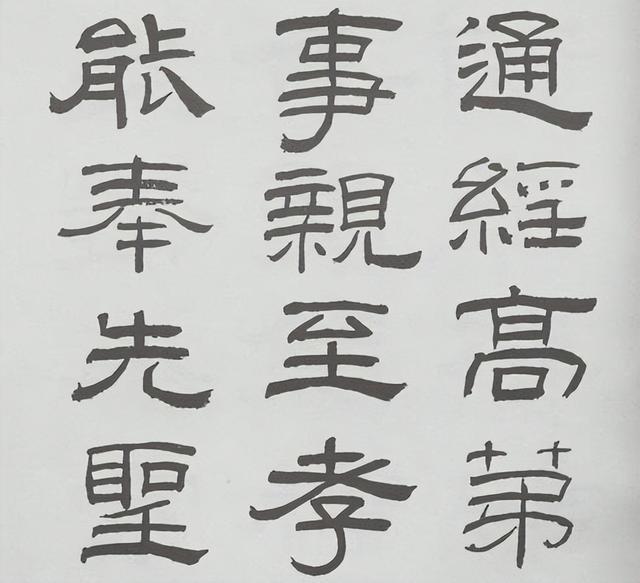 通經高苐
事親至孝
能奉先聖